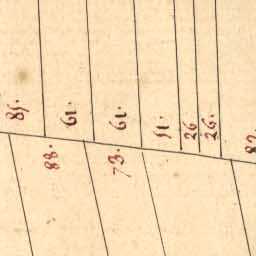 85.
61.
61.
51.
26
26.
88.
73.